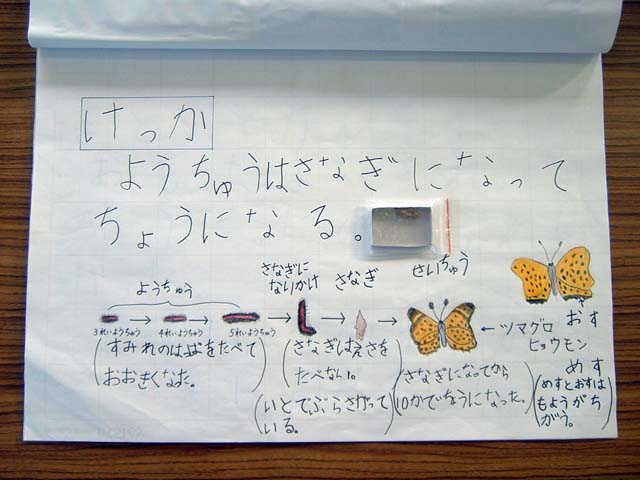 けっか
ようちゅうはさなぎになって
ちょうになる。
ようちゅう
さなぎに
なりかけ
さなぎ
せいちゅう
3れいようちゅう
4れいようちゅう
5れいようちゅう
ツマグロ
ヒョウモン
おす
めす
(すみれのはっぱをたべて
おおきくなった。)
(さなぎはえさを
たべない。)
(いとでぶらさがって
いる。)
(さなぎになってから
10かでちょうになった。)
(めすとおすは
もようがち
がう。)